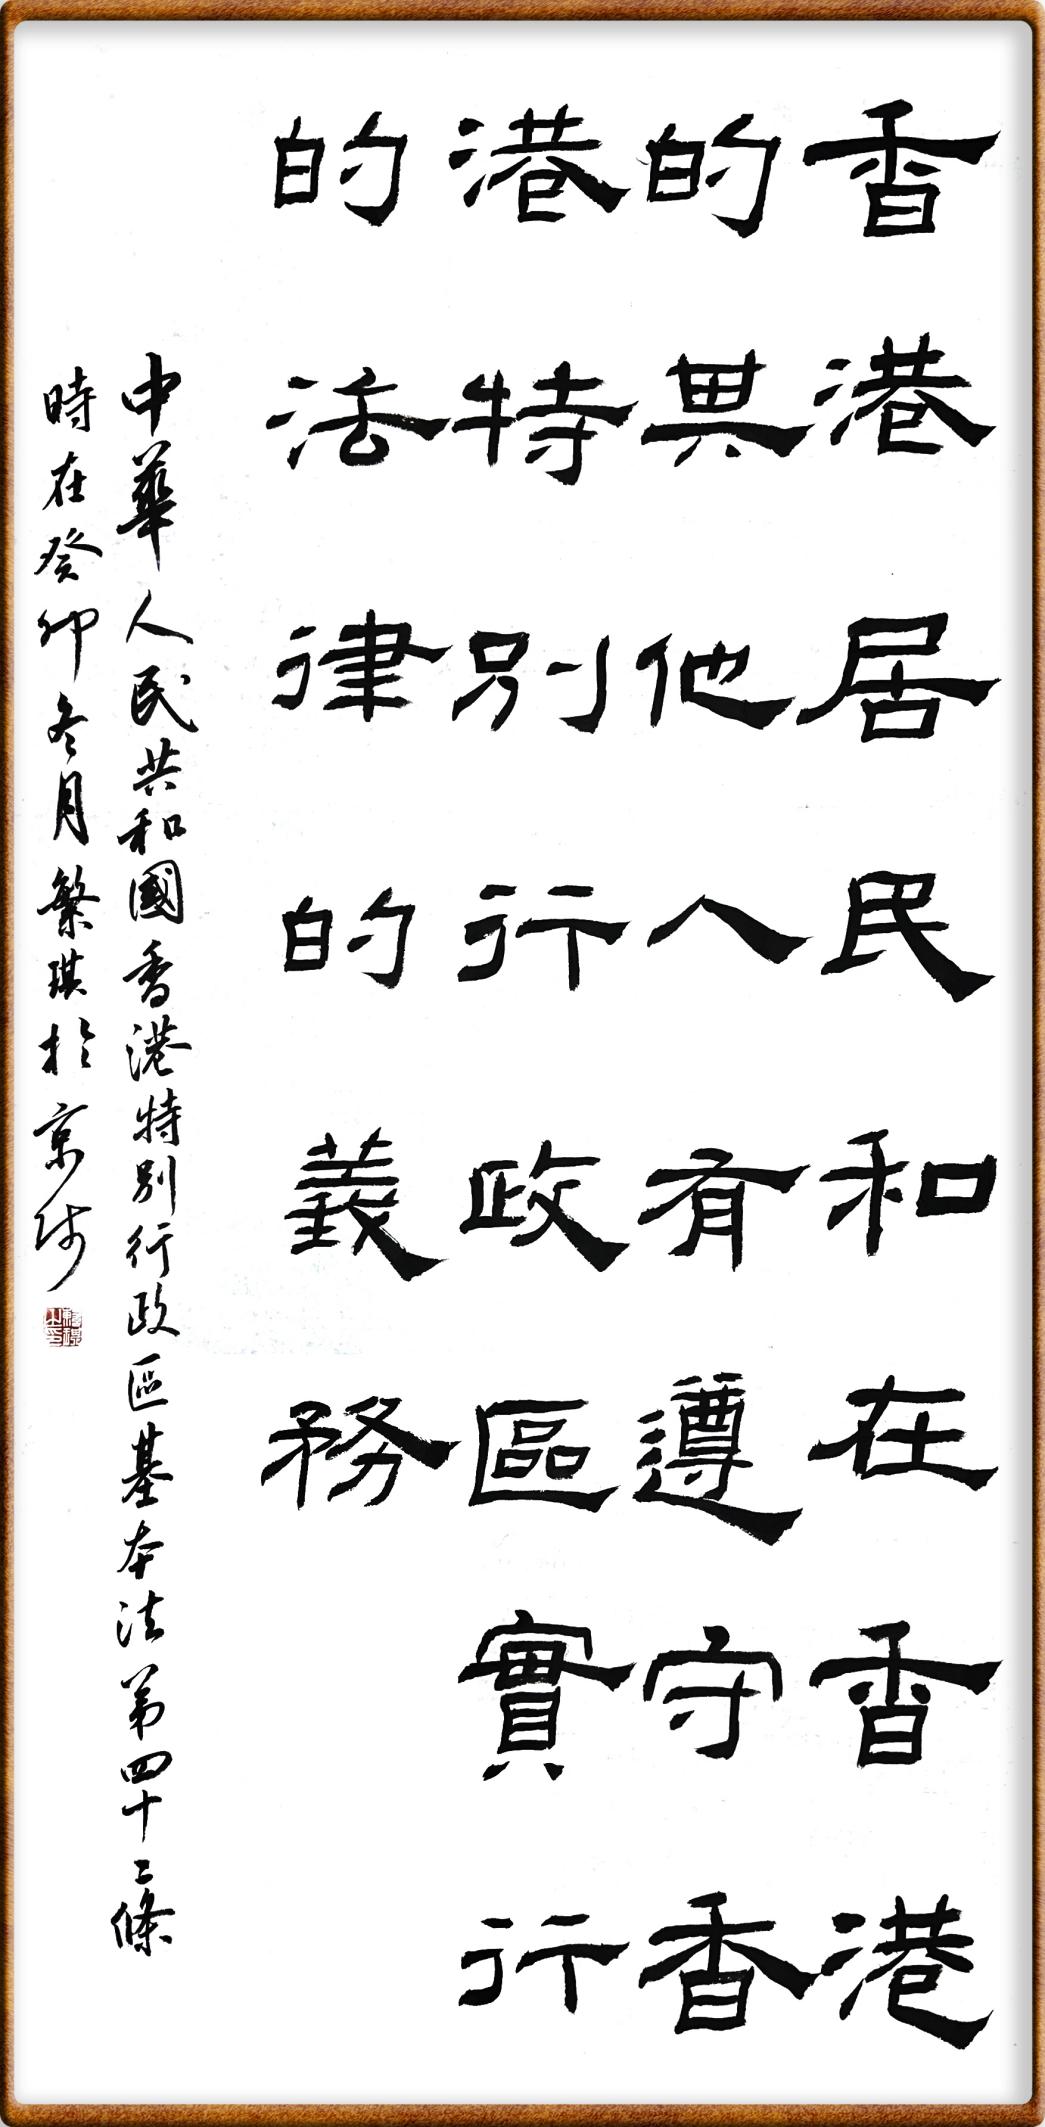 香港居民和在香港
的其他人有遵守香
港特別行政區實行
的法律的義務
中華人民共和國香港特別行政區基本法第四十二條
時在癸卯冬月繁琪於京師